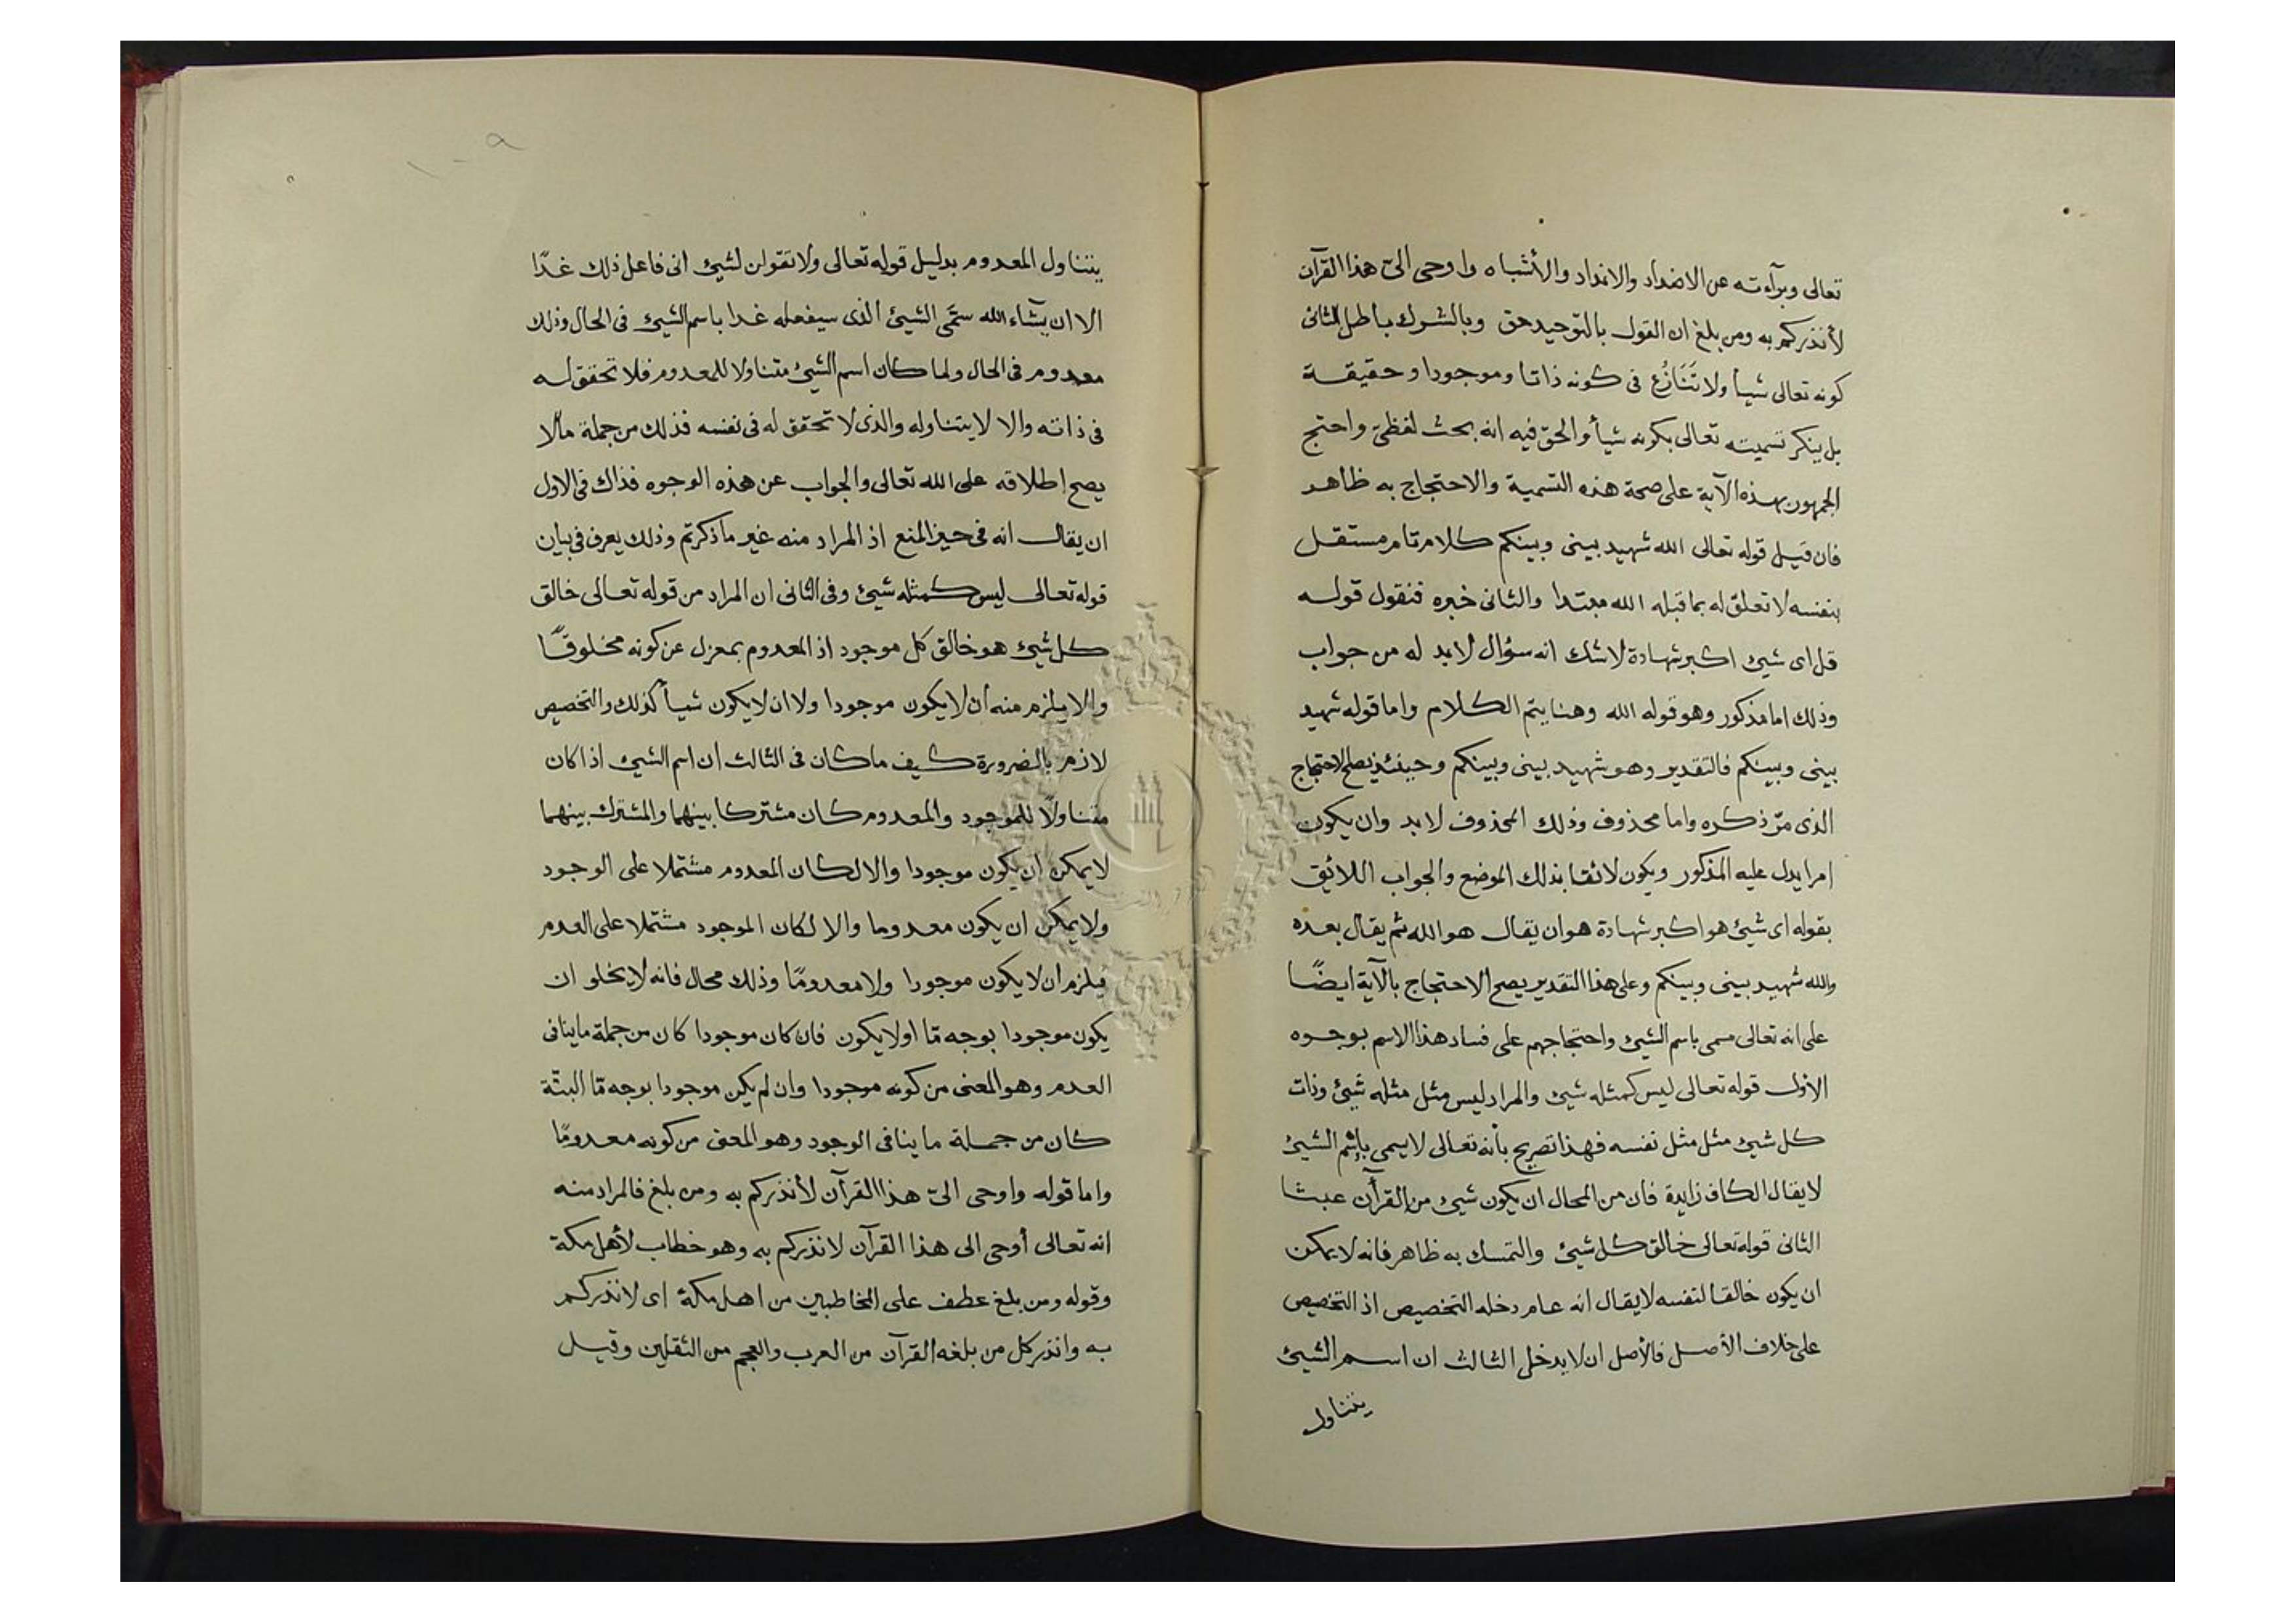 تعالى وبرآءته عن الاضداد والانداد والأشباه واوحى الىّ هذا القرآن
لأنذركم به ومن بلغ ان القول بالتوحيد حق وبالشرك باطل الثانى
كونه تعالى شيأ ولا تَنَازُع فى كونه ذاتا وموجودا وحقيقة
بل ينكر تسميته تعالى بكونه شيأ والحق فيه انه بحث لفظىّ واحتج
الجمهور بهذه الآية على صحة هذه التسمية والاحتجاج به ظاهر
فان قيل قوله تعالى الله شهيد بينى وبينكم كلام تام مستقل
بنفسه لا تعلق له بما قبله الله مبتدا والثانى خبره فنقول قوله
قل اى شيئ اكبر شهادة لا شك انه سؤال لابد له من جواب
وذلك اما مذكور وهو قوله الله وهنا يتم الكلام واما قوله شهيد
بينى وبينكم فالتقدير وهو شهيد بينى وبينكم وحينئذ يصلح الاحتجاج
الذى مرّ ذكره واما محذوف وذلك المحذوف لابد وان يكون
امرا يدل عليه المذكور ويكون لائقا بذلك الموضع والجواب اللائق
بقوله اى شيئ هو اكبر شهادة هو ان يقال هو الله ثم يقال بعده
والله شهيد بينى وبينكم وعلى هذا التقدير يصح الاحتجاج بالآية ايضًا
على انه تعالى مسمى باسم الشيئ واحتجاجهم على فساد هذا الاسم بوجوه
الاول قوله تعالى ليس كمثله شيئ والمراد ليس مثل مثله شيئ وذات
كل شيئ مثل مثل نفسه فهذا تصريح بأنه تعالى لا يسمى بإسم الشيئ
لا يقال الكاف زايدة فان من المحال ان يكون شيئ من القرآن عبثا
الثانى قوله تعالى خالق كل شيئ والتمسك به ظاهر فانه لا يمكن
ان يكون خالقا لنفسه لا يقال انه عام دخله التخصيص اذ التخصيص
على خلاف الأصل فالأصل ان لا يدخل الثالث ان اسم الشيئ
يتناول
١٠٩
يتناول المعدوم بدليل قوله تعالى ولا تقولن لشيئ انى فاعل ذلك غدًا
الا ان يشآء الله سمّى الشيئ الذى سيفعله غدا باسم الشيئ فى الحال وذلك
معدوم فى الحال ولما كان اسم الشيئ متناولا للمعدوم فلا تحقق له
فى ذاته والا لا يتناوله والذى لا تحقق له فى نفسه فذلك من جملة مالا
يصح إطلاقه على الله تعالى والجواب عن هذه الوجوه فذاك فى الاول
ان يقال انه فى حيز المنع اذ المراد منه غير ما ذكرتم وذلك يعرف فى بيان
قوله تعالى ليس كمثله شيئ وفى الثانى ان المراد من قوله تعالى خالق
كل شيئ هو خالق كل موجود اذ المعدوم بمعزل عن كونه مخلوقًا
والا يلزم منه أن لا يكون موجودا ولا ان لا يكون شيأ كذلك والتخصيص
لازم بالضرورة كيف ما كان فى الثالث ان اسم الشيئ اذا كان
متناولًا للموجود والمعدوم كان مشتركا بينهما والمشترك بينهما
لا يمكن ان يكون موجودا والا لكان المعدوم مشتملا على الوجود
ولا يمكن ان يكون معدوما والا لكان الموجود مشتملا على العدم
فيلزم ان لا يكون موجودا ولا معدومًا وذلك محال فانه لا يخلو ان
يكون موجودا بوجه مّا اولا يكون فان كان موجودا كان من جملة ما ينافى
العدم وهو المعنى من كونه موجودا وان لم يكن موجودا بوجه مّا البتّة
كان من جملة ما ينافى الوجود وهو المعنى من كونه معدومًا
واما قوله واوحى الىّ هذا القرآن لأنذركم به ومن بلغ فالمراد منه
انه تعالى أوحى الى هذا القرآن لانذركم به وهو خطاب لأهل مكة
وقوله ومن بلغ عطف على المخاطبين من اهل مكة اى لانذركم
به وانذر كل من بلغه القرآن من العرب والعجم من الثقلين وقيل